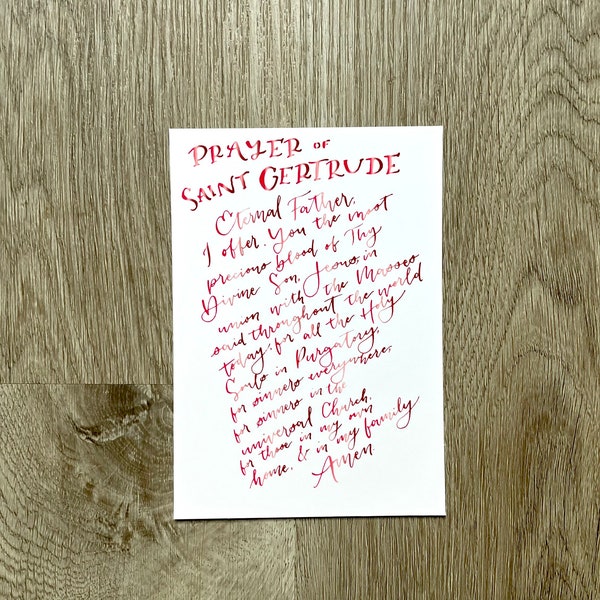 PRAYER OF
SAINT GERTRUDE
Eternal Father,
I offer You the most
precious blood of Thy
Divine Son, Jesus, in
union with the Masses
said throughout the world
today, for all the Holy
Souls in Purgatory,
for sinners everywhere,
for sinners in the
universal Church,
for those in my own
home, & in my family
Amen.